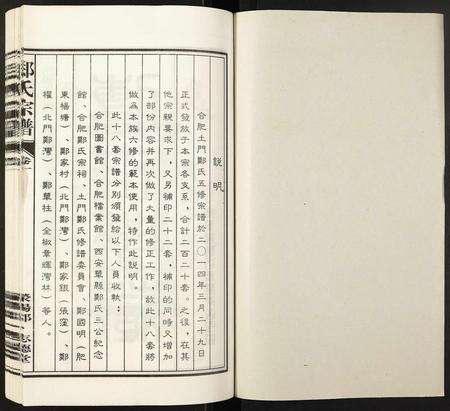 說明
合肥土門鄭氏五修宗譜於二〇一四年三月二十九日
正式發放于本宗各支系，合計二百二十套。之後，在其
他宗親要求下，又另補印二十二套，補印的同時又增加
了部份內容并再次做了大量的修正工作，故此十八套將
做為本族六修的範本使用，特作此說明。
此十八套宗譜分別頒發給以下人員收執：
合肥圖書館、合肥檔案館、西安華縣鄭氏三公紀念
館、合肥鄭氏宗祠、土門鄭氏修譜委員會、鄭國明（肥
東楊塘）、鄭家村（北門鄭灣）、鄭家銀（張窪）、鄭
櫂（北門鄭灣）、鄭華柱（金椒章輝灣林）等人。
鄭氏宗譜
卷一
滎陽郡
志德堂